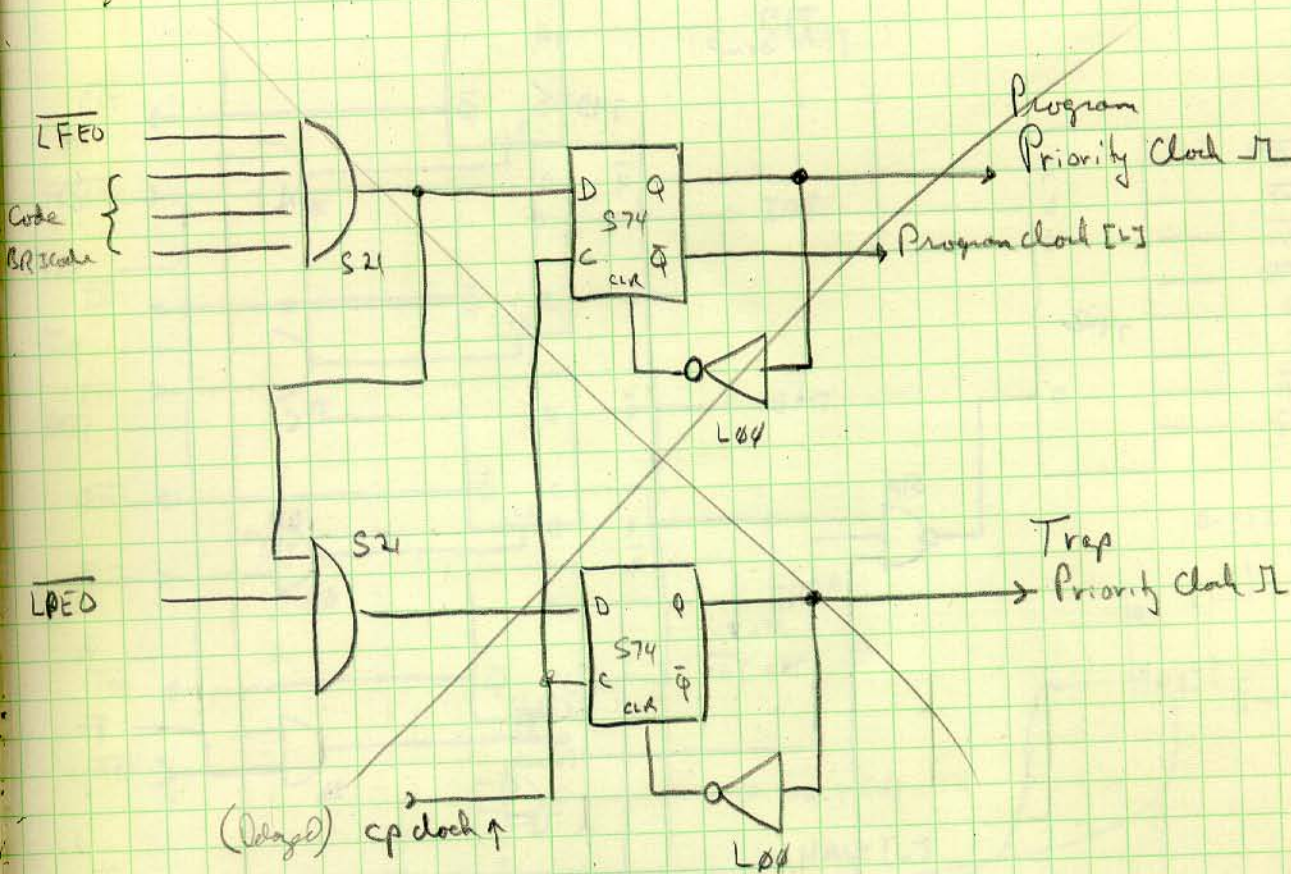 LFEO
Code
BRI Code
S21
D Q
S74
C Q̄
CLR
Program
Priority Clock
Program clock [L]
L04
LPEO
S21
D Q
S74
C Q̄
CLR
Trap
Priority Clock
cp clock ↑
L04